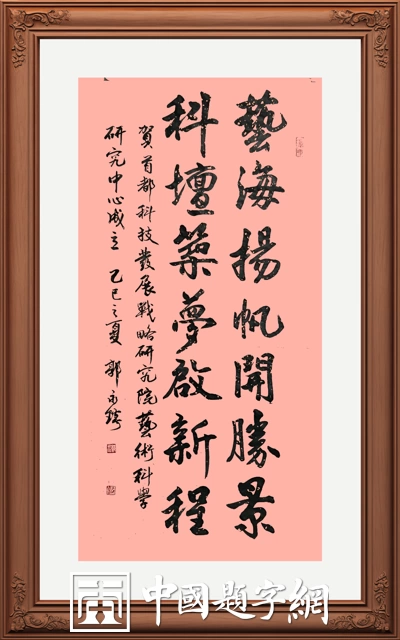 藝海揚帆開勝景
科壇築夢啟新程
賀首都科技發展戰略研究院藝術科學
研究中心成立 乙巳之夏 郭永
中國題字網